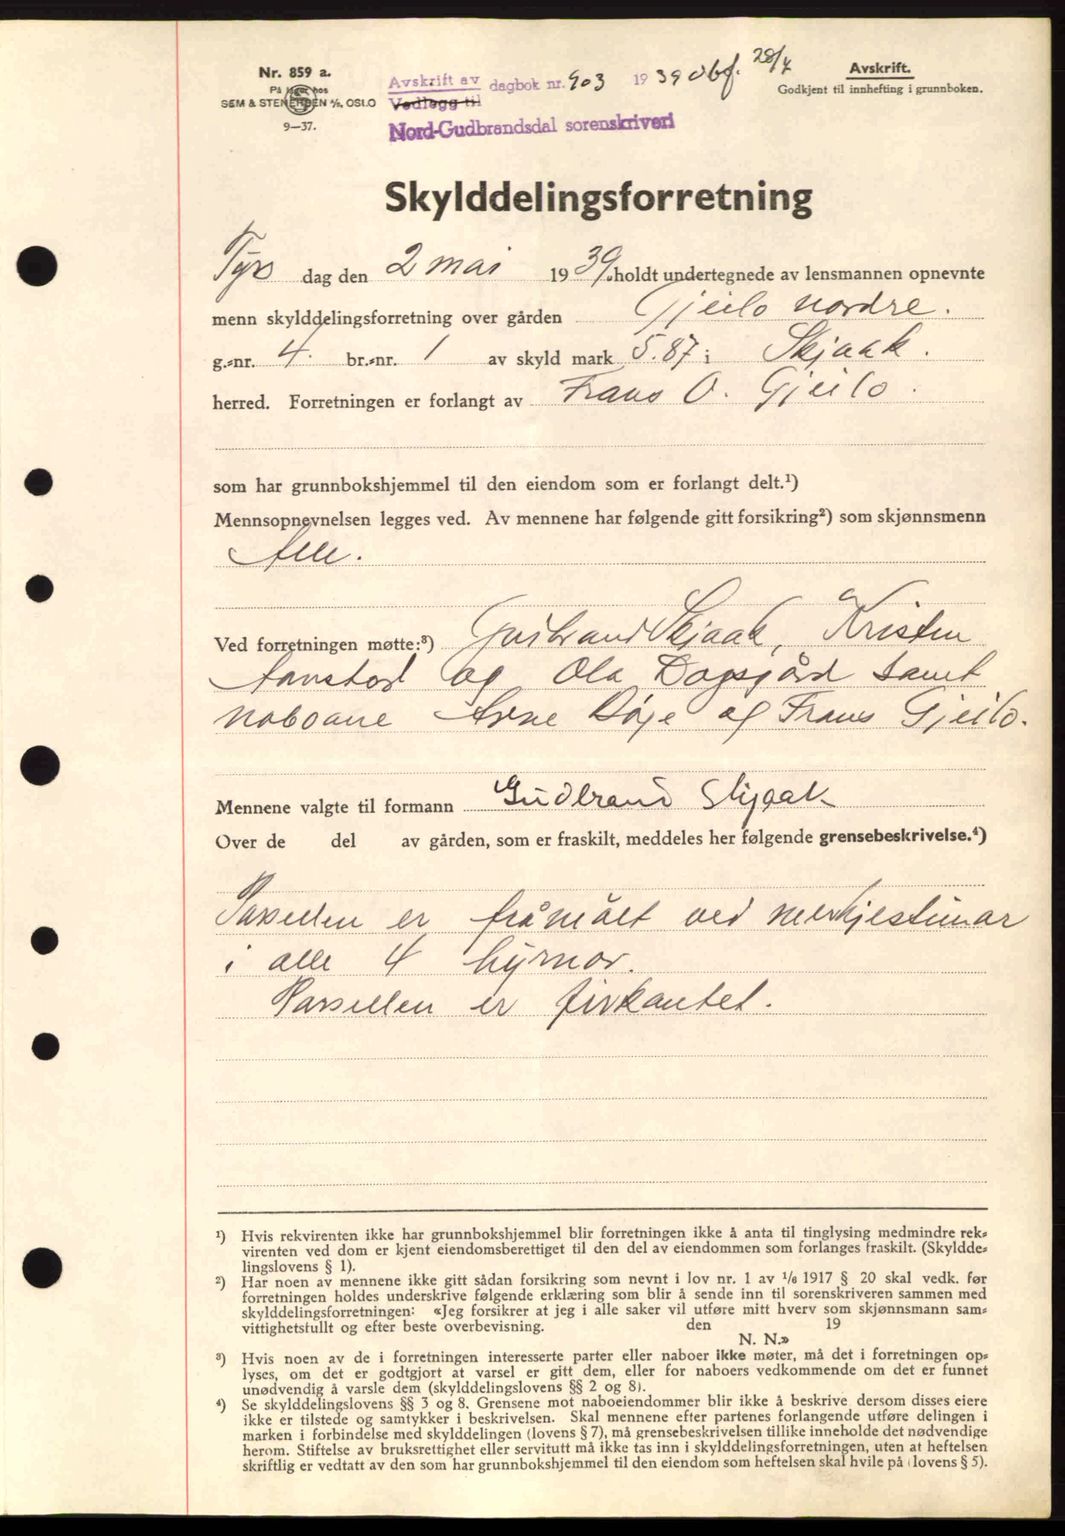 Nr. 859 a.
På lager hos
SEM & STENERSEN A/S, OSLO
9—37.
Avskrift av dagbok nr. 903 1939 Obf. 28/7
Vedlegg til
Nord-Gudbrandsdal sorenskriveri
Avskrift.
Godkjent til innhefting i grunnboken.
Skylddelingsforretning
Tys dag den 2 mai 1939. holdt undertegnede av lensmannen opnevnte
menn skylddelingsforretning over gården Gjeilo nordre.
g.-nr. 4. br.-nr. 1 av skyld mark 5.87 i Skjaak.
herred. Forretningen er forlangt av Frans O. Gjeilo.
som har grunnbokshjemmel til den eiendom som er forlangt delt.¹)
Mennsopnevnelsen legges ved. Av mennene har følgende gitt forsikring²) som skjønnsmenn
Alle.
Ved forretningen møtte:³) Gudbrand Skjaak, Kristen
Aanstad og Ola Dagsgård samt
naboane Arne Høje og Frans Gjeilo.
Mennene valgte til formann Gudbrand Skjaak
Over de del av gården, som er fraskilt, meddeles her følgende grensebeskrivelse.⁴)
Parsellen er fråmålt ved merkjesteinar
i alle 4 hyrnor.
Parsellen er firkantet.
¹) Hvis rekvirenten ikke har grunnbokshjemmel blir forretningen ikke å anta til tinglysing medmindre rek-
virenten ved dom er kjent eiendomsberettiget til den del av eiendommen som forlanges fraskilt. (Skyldde-
lingslovens § 1).
²) Har noen av mennene ikke gitt sådan forsikring som nevnt i lov nr. 1 av 1/6 1917 § 20 skal vedk. før
forretningen holdes underskrive følgende erklæring som blir å sende inn til sorenskriveren sammen med
skylddelingsforretningen: «Jeg forsikrer at jeg i alle saker vil utføre mitt hverv som skjønnsmann sam-
vittighetsfullt og efter beste overbevisning. den 19
N. N.»
³) Hvis noen av de i forretningen interesserte parter eller naboer ikke møter, må det i forretningen op-
lyses, om det er godtgjort at varsel er gitt dem, eller for naboers vedkommende om det er funnet
unødvendig å varsle dem (skylddelingslovens §§ 2 og 8).
⁴) Se skylddelingslovens §§ 3 og 8. Grensene mot naboeiendommer blir ikke å beskrive dersom disses eiere
ikke er tilstede og samtykker i beskrivelsen. Skal mennene efter partenes forlangende utføre delingen i
marken i forbindelse med skylddelingen (lovens § 7), må grensebeskrivelsen tillike inneholde det nødvendige
herom. Stiftelse av bruksrettighet eller servitutt må ikke tas inn i skylddelingsforretningen, uten at heftelsen
skriftlig er vedtatt av den som har grunnbokshjemmel til den eiendom som heftelsen skal hvile på (lovens § 5).